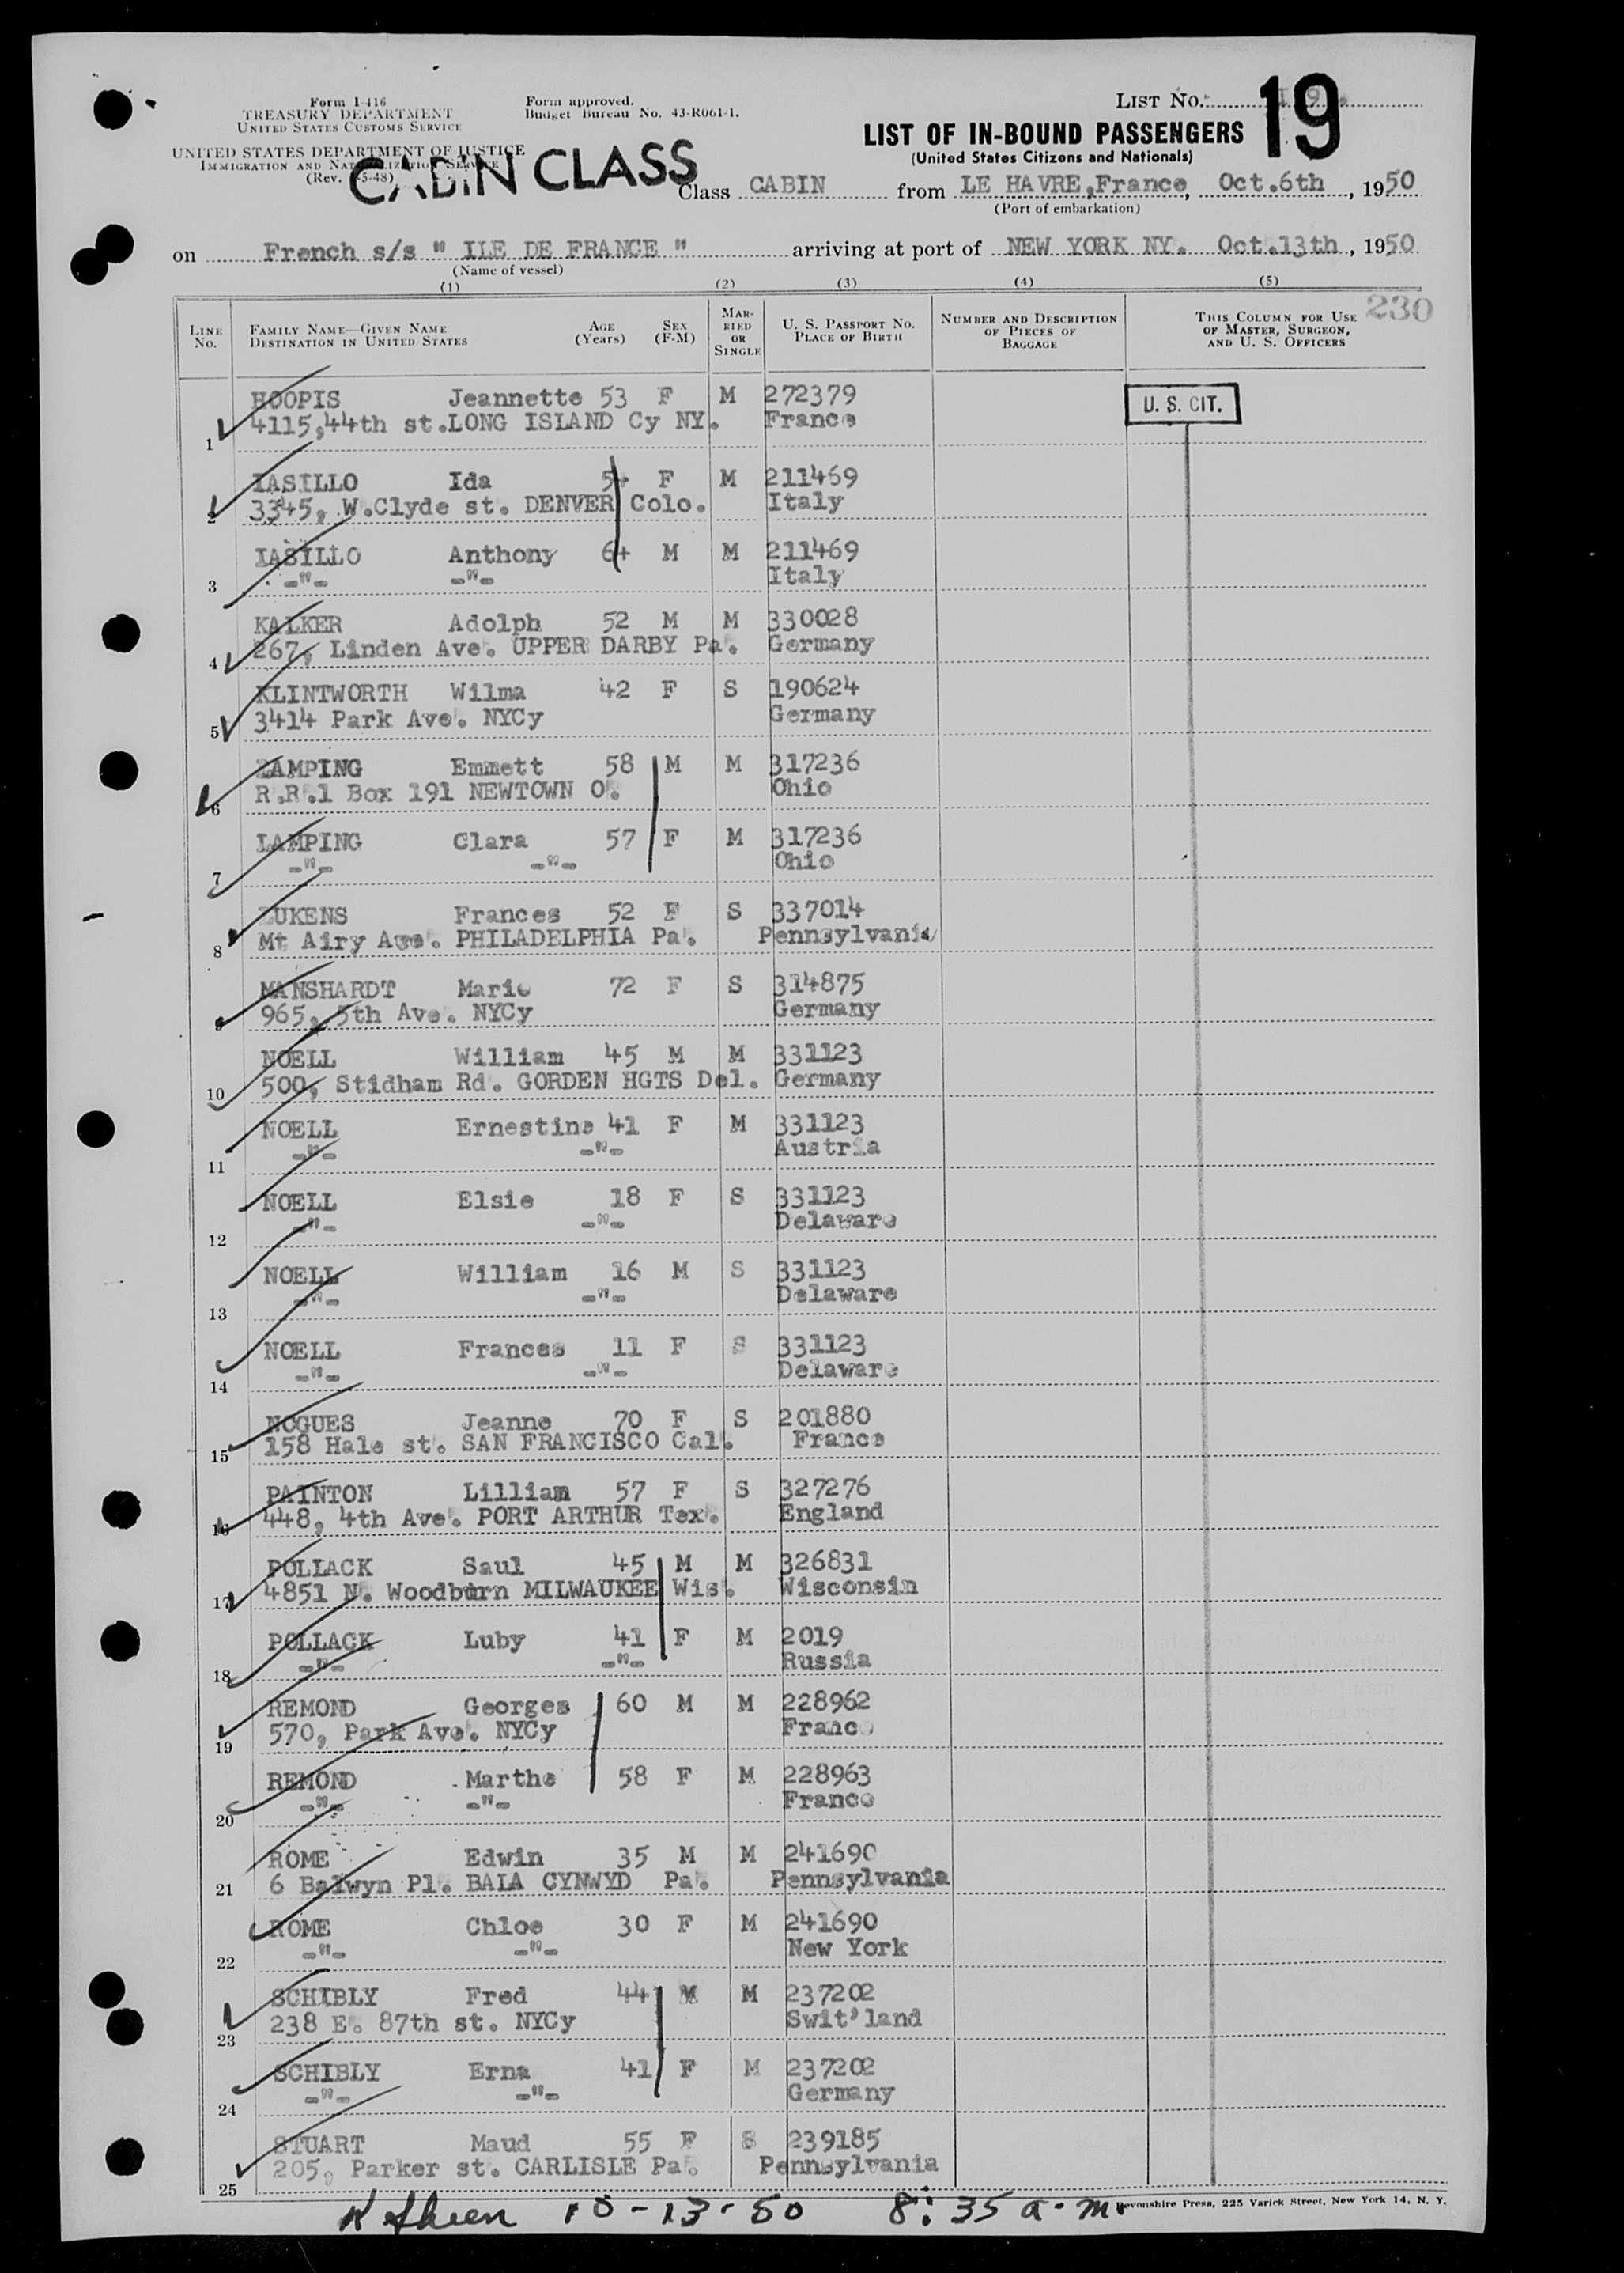 Form I-416
TREASURY DEPARTMENT
UNITED STATES CUSTOMS SERVICE
UNITED STATES DEPARTMENT OF JUSTICE
IMMIGRATION AND NATURALIZATION SERVICE
(Rev. 5-48)
Form approved.
Budget Bureau No. 43-R061-1.
CABIN CLASS
LIST NO. 19
LIST OF IN-BOUND PASSENGERS
(United States Citizens and Nationals)
Class CABIN from LE HAVRE,France, Oct.6th, 1950
(Port of embarkation)
on French s/s " ILE DE FRANCE " arriving at port of NEW YORK NY. Oct.13th, 1950
(Name of vessel)
(1) (2) (3) (4) (5)
230
LINE No. FAMILY NAME—GIVEN NAME DESTINATION IN UNITED STATES AGE (Years) SEX (F-M) MARRIED OR SINGLE U. S. PASSPORT NO. PLACE OF BIRTH NUMBER AND DESCRIPTION OF PIECES OF BAGGAGE THIS COLUMN FOR USE OF MASTER, SURGEON, AND U. S. OFFICERS
HOOPIS Jeannette 53 F M 272379
U. S. CIT.
1 4115,44th st.LONG ISLAND Cy NY. France
IASILLO Ida 54 F M 211469
2 3345, W.Clyde st. DENVER Colo. Italy
IASILLO Anthony 64 M M 211469
3 -"- -"- Italy
KALKER Adolph 52 M M 330028
4 267, Linden Ave. UPPER DARBY Pa. Germany
KLINTWORTH Wilma 42 F S 190624
5 3414 Park Ave. NYCy Germany
LAMPING Emmett 58 M M 317236
6 R.R.1 Box 191 NEWTOWN O. Ohio
LAMPING Clara 57 F M 317236
7 -"- -"- Ohio
LUKENS Frances 52 F S 337014
8 Mt Airy Ave. PHILADELPHIA Pa. Pennsylvania
MANSHARDT Marie 72 F S 314875
9 965, 5th Ave. NYCy Germany
NOELL William 45 M M 331123
10 500, Stidham Rd. GORDEN HGTS Del. Germany
NOELL Ernestine 41 F M 331123
11 -"- -"- Austria
NOELL Elsie 18 F S 331123
12 -"- -"- Delaware
NOELL William 16 M S 331123
13 -"- -"- Delaware
NOELL Frances 11 F S 331123
14 -"- -"- Delaware
NOGUES Jeanne 70 F S 201880
15 158 Hale st. SAN FRANCISCO Cal. France
PAINTON Lilliam 57 F S 327276
16 448, 4th Ave. PORT ARTHUR Tex. England
POLLACK Saul 45 M M 326831
17 4851 N. Woodburn MILWAUKEE Wis. Wisconsin
POLLACK Luby 41 F M 2019
18 -"- -"- Russia
REMOND Georges 60 M M 228962
19 570, Park Ave. NYCy France
REMOND Marthe 58 F M 228963
20 -"- -"- France
ROME Edwin 35 M M 241690
21 6 Balwyn Pl. BALA CYNWYD Pa. Pennsylvania
ROME Chloe 30 F M 241690
22 -"- -"- New York
SCHIBLY Fred 44 M M 237202
23 238 E. 87th st. NYCy Swit'land
SCHIBLY Erna 41 F M 237202
24 -"- -"- Germany
STUART Maud 55 F S 239185
25 205, Parker st. CARLISLE Pa. Pennsylvania
10-13-50 8:35 a.m.
Devonshire Press, 225 Varick Street, New York 14, N. Y.